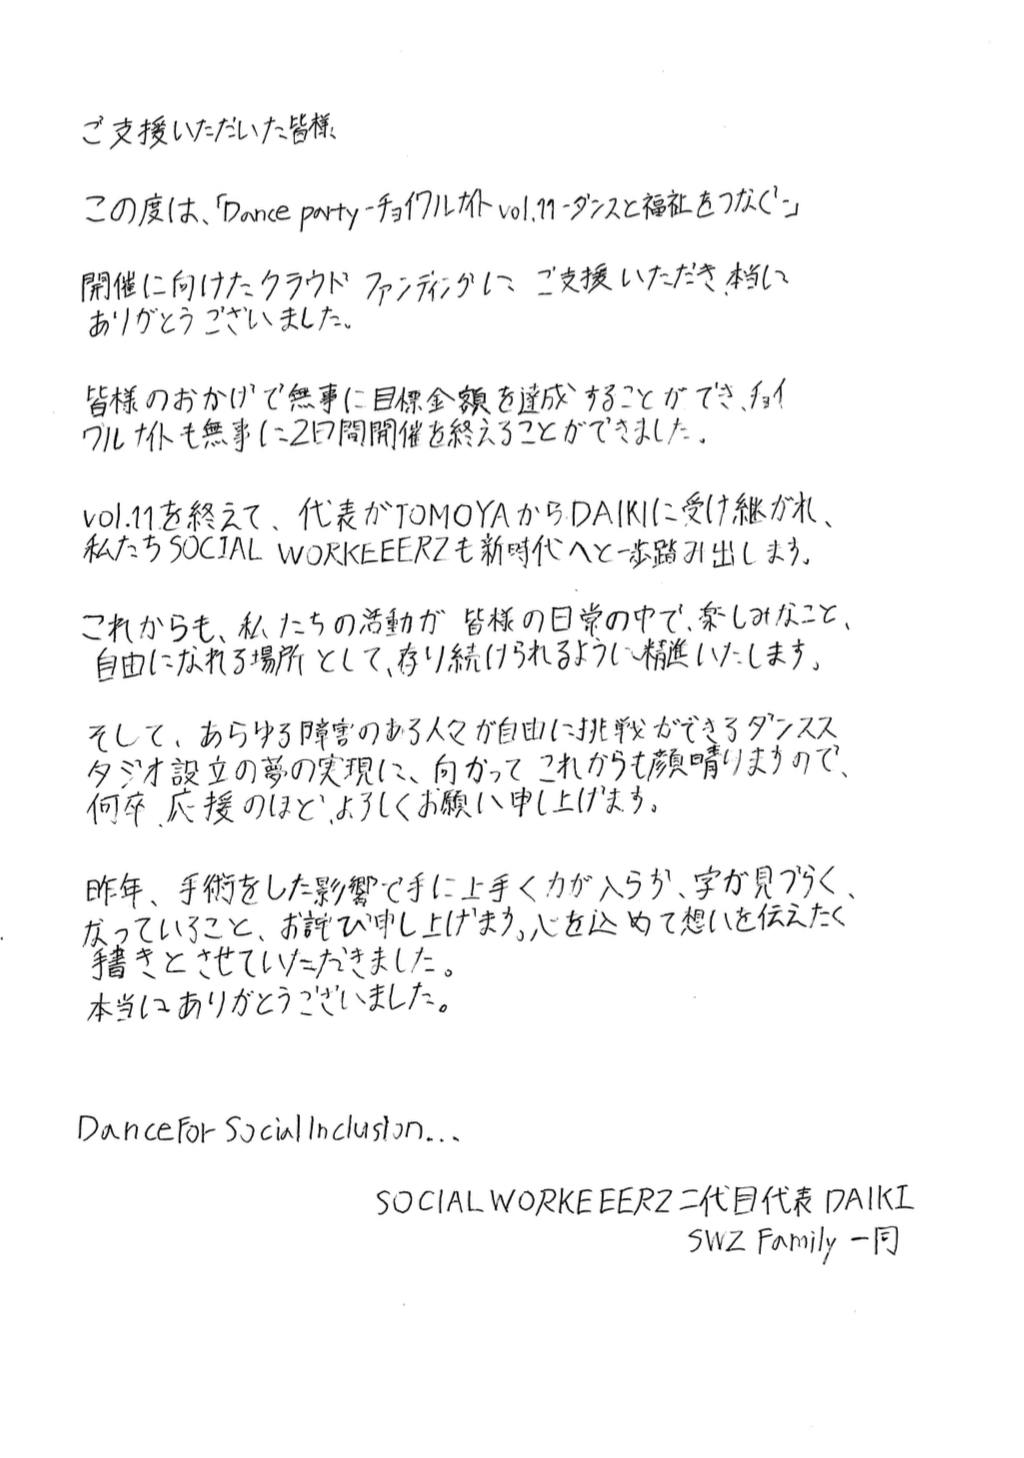 ご支援いただいた皆様、
この度は、「Dance party-チョイワルナイトvol.11-ダンスと福祉をつなぐ-」
開催に向けたクラウドファンディングに ご支援いただき、本当に
ありがとうございました。
皆様のおかげで無事に目標金額を達成することができ、チョイ
ワルナイトも無事に2日間開催を終えることができました。
vol.11を終えて、代表がTOMOYAからDAIKIに受け継がれ、
私たちSOCIAL WORKEEERZも新時代へと一歩踏み出します。
これからも、私たちの活動が 皆様の日常の中で、楽しみなこと、
自由になれる場所として、存り続けられるように精進いたします。
そして、あらゆる障害のある人々が自由に挑戦ができるダンスス
タジオ設立の夢の実現に、向かって これからも顔晴りますので、
何卒、応援のほど、よろしくお願い申し上げます。
昨年、手術をした影響で手に上手く力が入らず、字が見づらく、
なっていること、お詫び申し上げます。心を込めて想いを伝えたく
手書きとさせていただきました。
本当にありがとうございました。
Dance For Social Inclusion...
SOCIAL WORKEEERZ 二代目代表 DAIKI
SWZ Family 一同